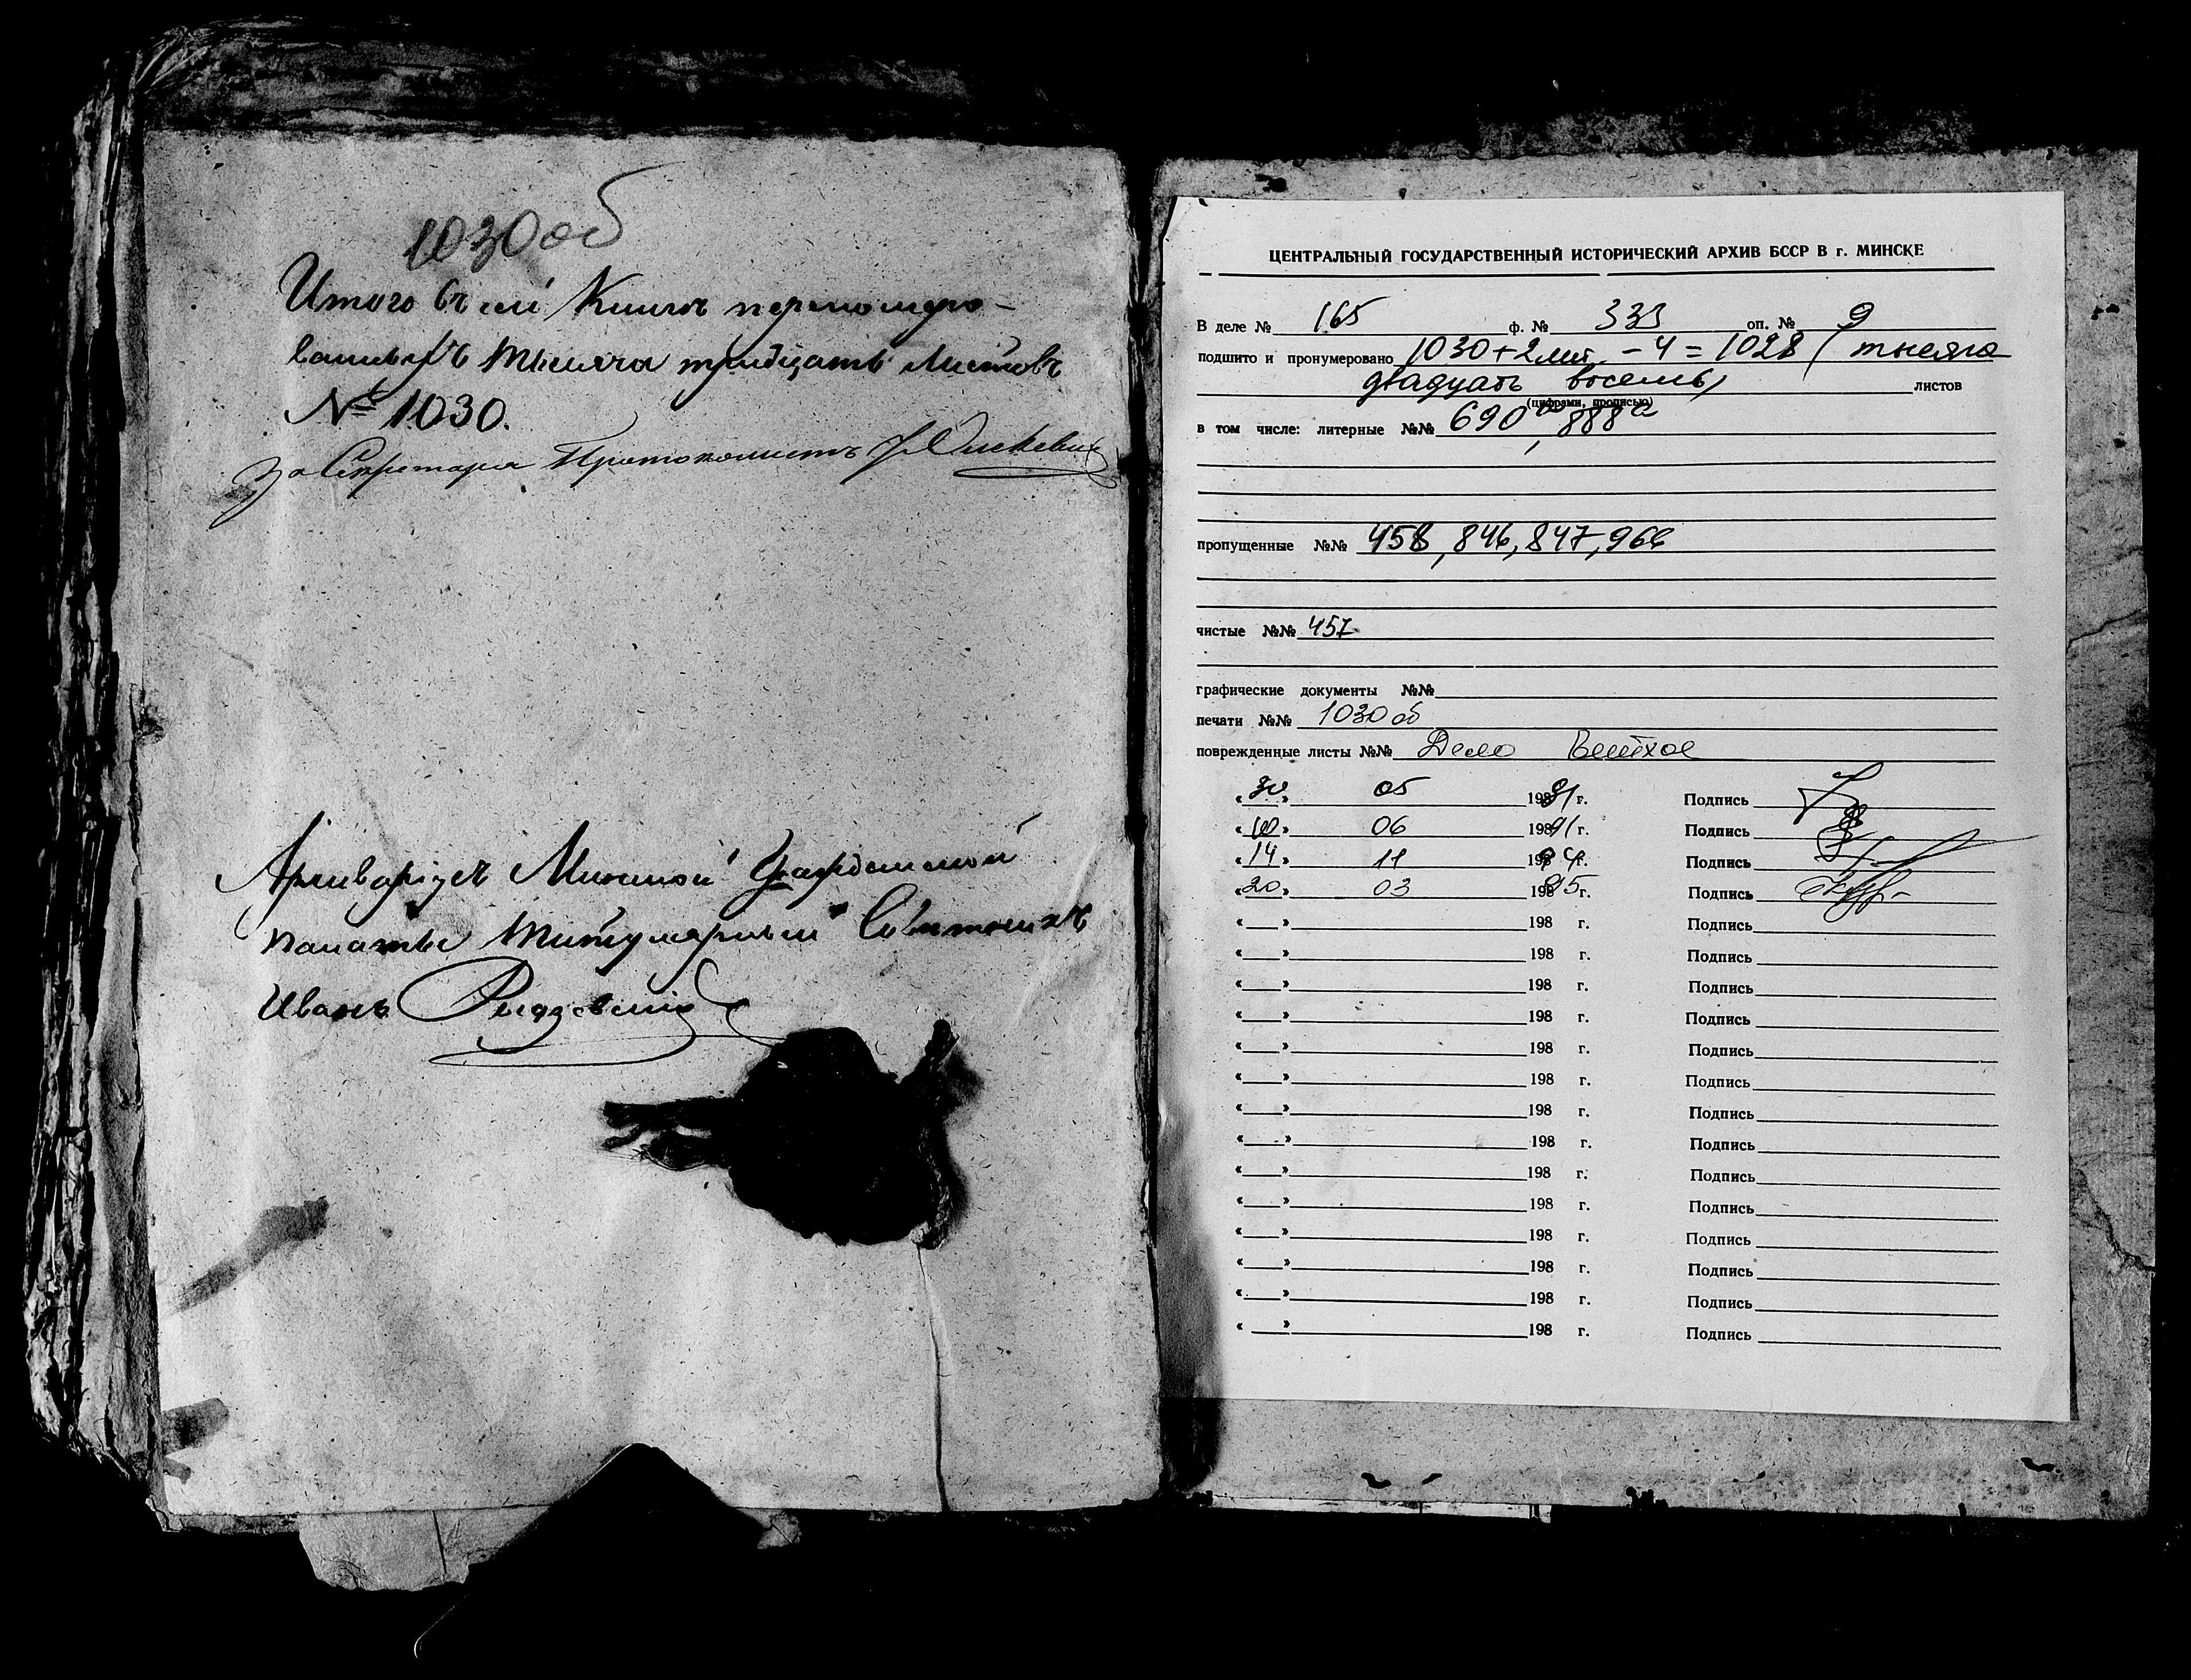 1030 об
Итого въ сей Книгѣ перномеро-
ванныхъ тысяча тридцать листовъ
№ 1030.
За Секретаря Протоколистъ
Архиваріусъ Минской Гражданской
палаты Титулярный Совѣтникъ
Иванъ
ЦЕНТРАЛЬНЫЙ ГОСУДАРСТВЕННЫЙ ИСТОРИЧЕСКИЙ АРХИВ БССР В г. МИНСКЕ
В деле № 165 ф. № 333 оп. № 9
подшито и пронумеровано 1030+2 лит. – 4 = 1028 (тысяча
двадцать восемь) листов
(цифрами, прописью)
в том числе: литерные №№ 690а, 888а
пропущенные №№ 458, 846, 847, 966
чистые №№ 457
графические документы №№
печати №№ 1030 об
поврежденные листы №№ Дело ветхое
«30» 05 1991 г. Подпись
«10» 06 1991 г. Подпись
«14» 11 1994 г. Подпись
«20» 03 1995 г. Подпись
« » 198 г. Подпись
« » 198 г. Подпись
« » 198 г. Подпись
« » 198 г. Подпись
« » 198 г. Подпись
« » 198 г. Подпись
« » 198 г. Подпись
« » 198 г. Подпись
« » 198 г. Подпись
« » 198 г. Подпись
« » 198 г. Подпись
« » 198 г. Подпись
« » 198 г. Подпись
« » 198 г. Подпись